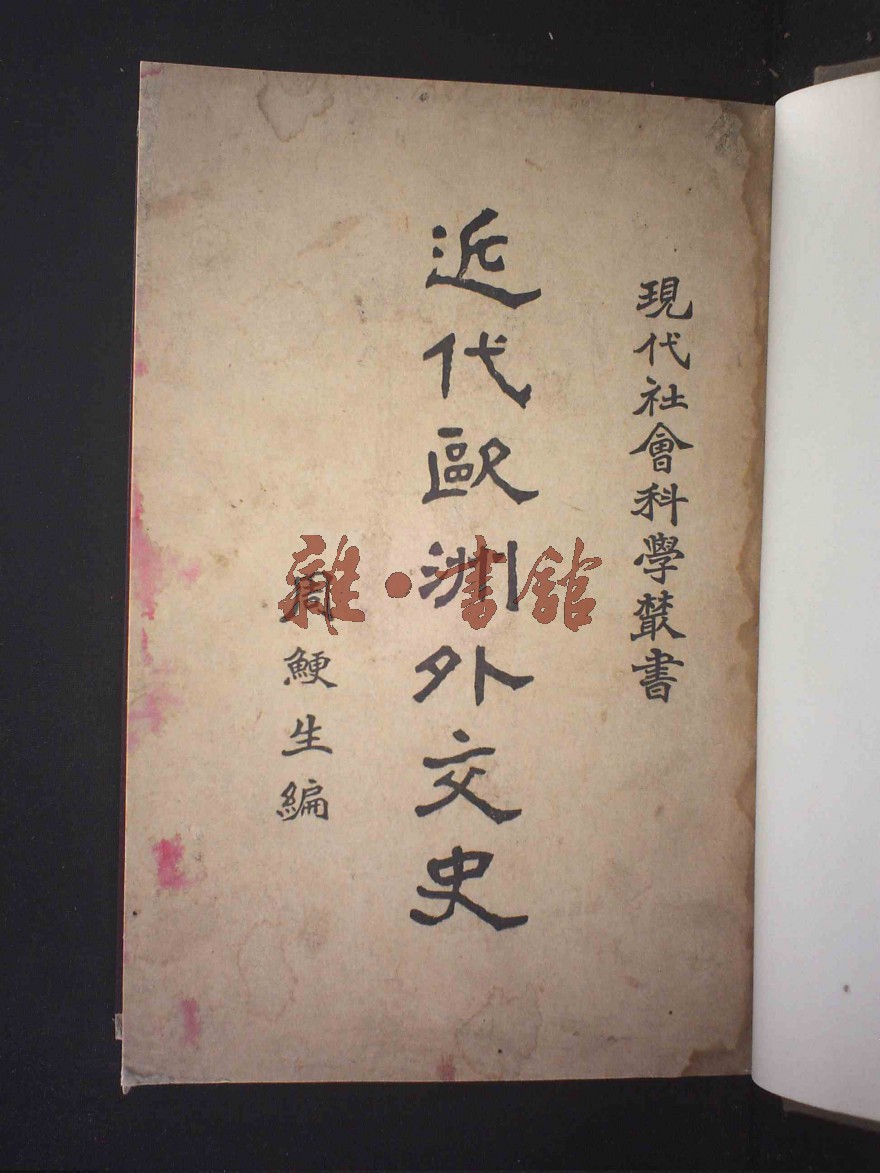 現代社會科學叢書
近代歐洲外交史
周鯁生編
雜·書館